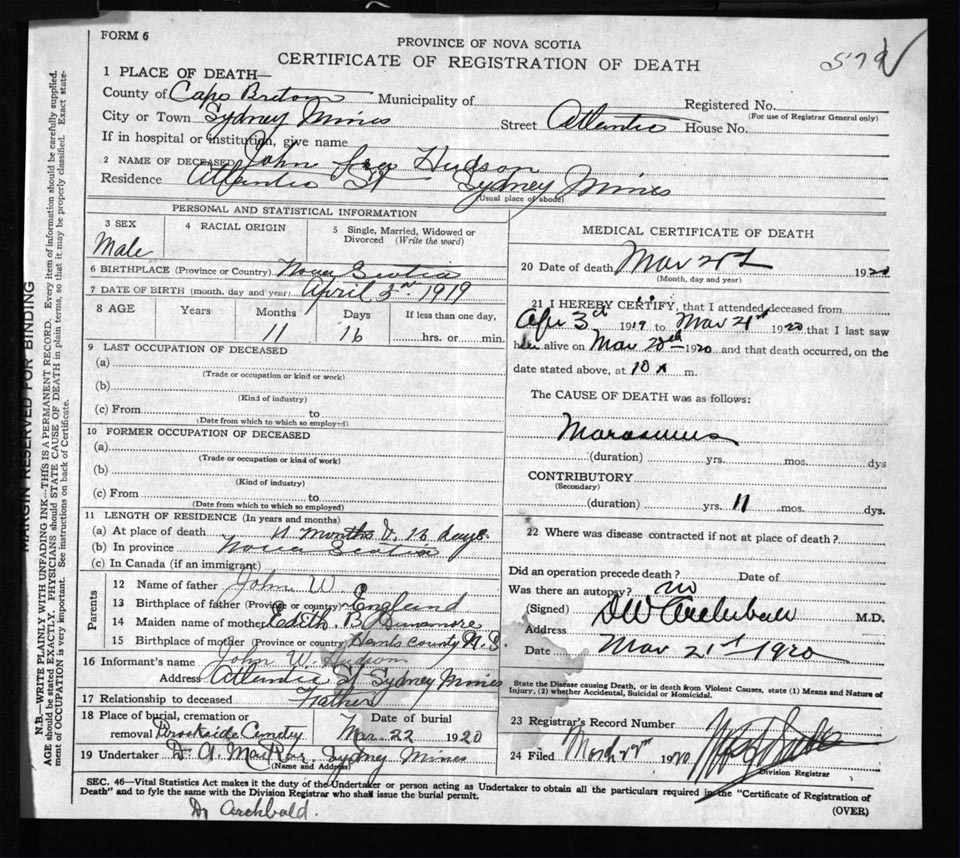 FORM 6
PROVINCE OF NOVA SCOTIA
CERTIFICATE OF REGISTRATION OF DEATH
579
1 PLACE OF DEATH—
County of Cape Breton Municipality of Registered No.
(For use of Registrar General only)
City or Town Sydney Mines Street Atlantic House No.
If in hospital or institution, give name
2 NAME OF DECEASED John Hudson
Residence Atlantic St Sydney Mines
(Usual place of abode)
PERSONAL AND STATISTICAL INFORMATION
3 SEX
Male
4 RACIAL ORIGIN
5 Single, Married, Widowed or Divorced (Write the word)
6 BIRTHPLACE (Province or Country) Nova Scotia
7 DATE OF BIRTH (month, day and year) April 3rd 1919
8 AGE Years Months Days If less than one day,
11 16 hrs. or min.
9 LAST OCCUPATION OF DECEASED
(a)
(Trade or occupation or kind or work)
(b)
(Kind of industry)
(c) From to
(Date from which to which so employed)
10 FORMER OCCUPATION OF DECEASED
(a)
(Trade or occupation or kind of work)
(b)
(Kind of industry)
(c) From to
(Date from which to which so employed)
11 LENGTH OF RESIDENCE (In years and months)
(a) At place of death 11 months & 16 days
(b) In province Nova Scotia
(c) In Canada (if an immigrant)
Parents
12 Name of father John W
13 Birthplace of father (Province or country) England
14 Maiden name of mother Edith B
15 Birthplace of mother (Province or country) Hants County N.S.
16 Informant's name John W. Hudson
Address Atlantic St Sydney Mines
17 Relationship to deceased Father
18 Place of burial, cremation or removal Brookside Cemetry Date of burial Mar. 22 1920
19 Undertaker Sydney Mines
(Name and Address)
MEDICAL CERTIFICATE OF DEATH
20 Date of death Mar 21st 1920
(Month, day and year)
21 I HEREBY CERTIFY, that I attended deceased from
Apr 3rd 1919 to Mar 21st 1920 that I last saw
h alive on Mar 20th 1920 and that death occurred, on the
date stated above, at 10 m.
The CAUSE OF DEATH was as follows:
Marasmus
(duration) yrs. mos. dys
CONTRIBUTORY
(Secondary)
(duration) yrs. 11 mos. dys.
22 Where was disease contracted if not at place of death?
Did an operation precede death? Date of
Was there an autopsy? no
(Signed) DW Archibald M.D.
Address
Date Mar 21st 1920
State the Disease causing Death, or in death from Violent Causes, state (1) Means and Nature of
Injury, (2) whether Accidental, Suicidal or Homicidal.
23 Registrar's Record Number
24 Filed March 22nd 1920
Division Registrar
SEC. 46—Vital Statistics Act makes it the duty of the Undertaker or person acting as Undertaker to obtain all the particulars required in the "Certificate of Registration of
Death" and to fyle the same with the Division Registrar who shall issue the burial permit.
(OVER)
Dr Archbald.
MARGIN RESERVED FOR BINDING
N.B.—WRITE PLAINLY WITH UNFADING INK—THIS IS A PERMANENT RECORD. Every item of information should be carefully supplied.
AGE should be stated EXACTLY. PHYSICIANS should STATE CAUSE OF DEATH in plain terms, so that it may be properly classified. Exact state-
ment of OCCUPATION is very important. See instructions on back of Certificate.